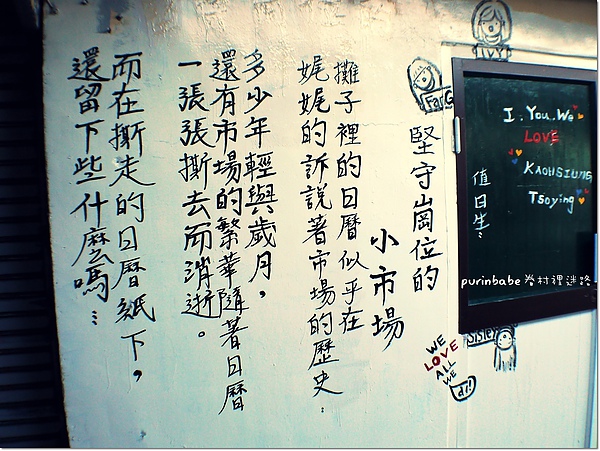 堅守崗位的
小市場
攤子裡的日曆似乎在
娓娓的訴說著市場的歷史.
多少年輕與歲月，
還有市場的繁華隨著日曆
一張張撕去而消逝。
而在撕走的日曆紙下，
還留下些什麼嗎…
IVY
Far
I. You. We
LOVE
KAOHSIUNG
Tsoying
值日生:
purinbabe 眷村裡迷路
Sister
WE
LOVE
ALL
WE